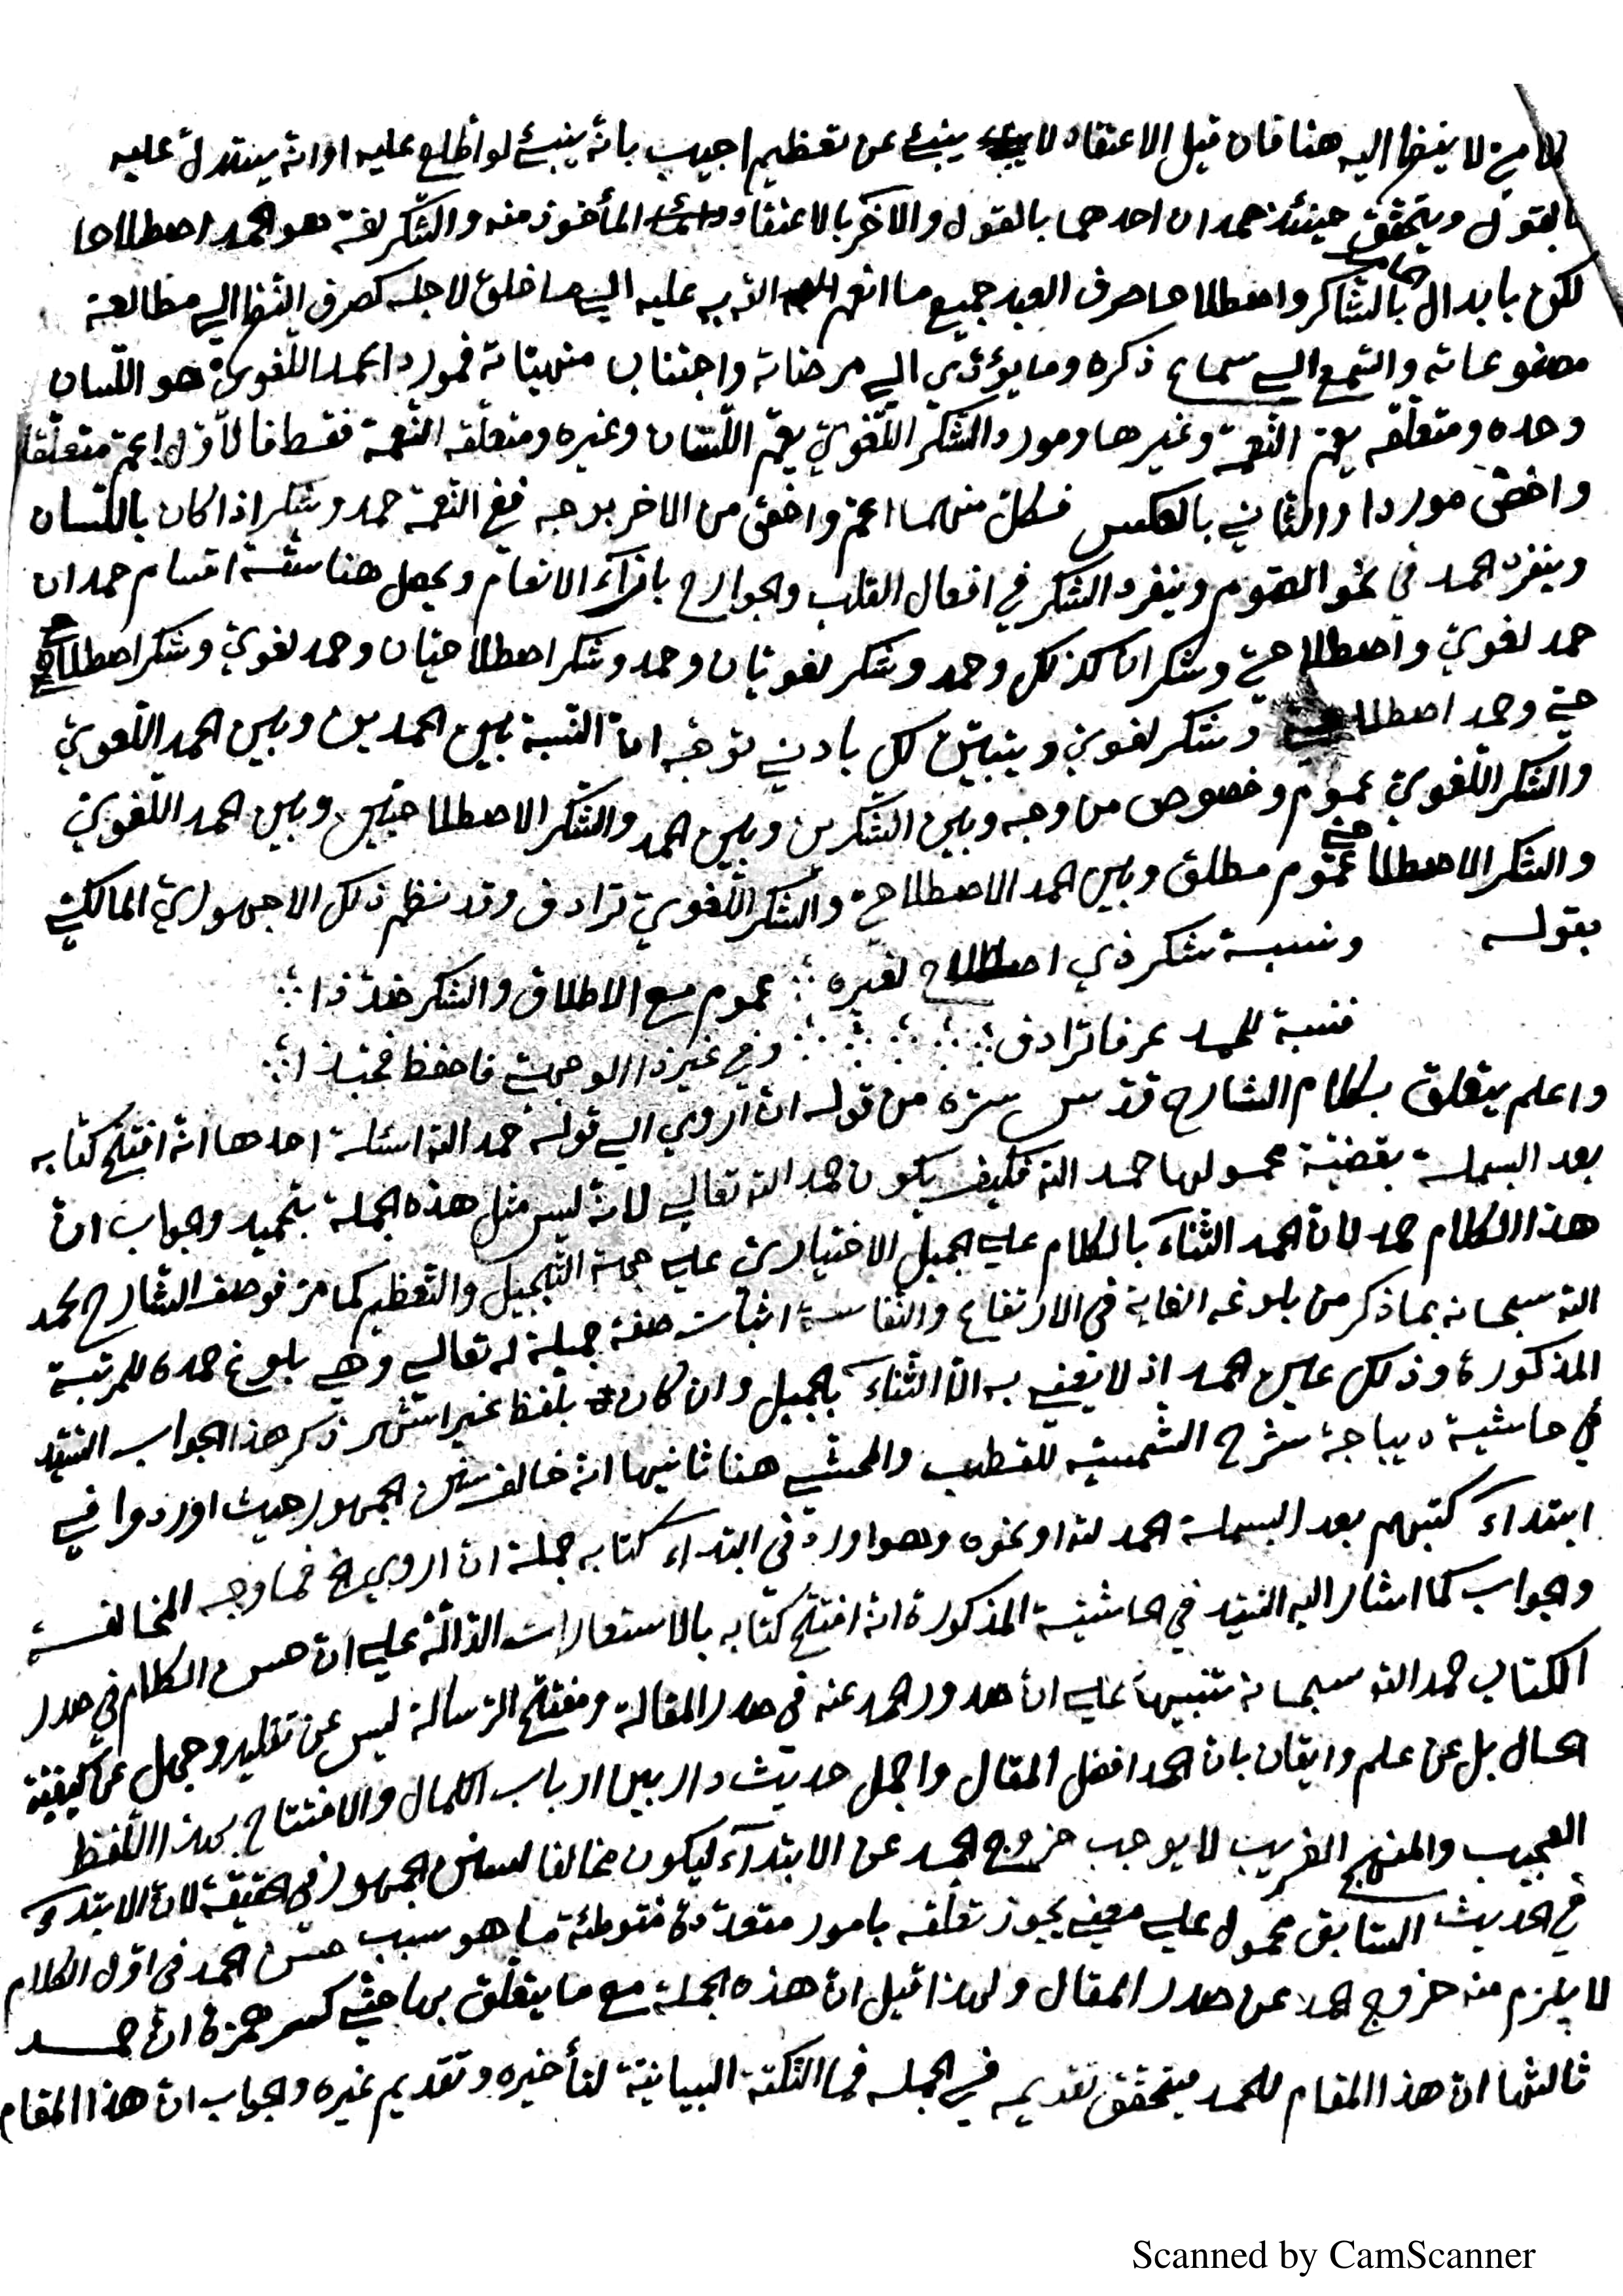 لا ينظر اليه هنا فان قيل الاعتقاد لا ينبئ عن تعظيم اجيب بانه ينبئ لو اطلع عليه او انه يستدل عليه
بالقول ويتحقق حينئذ حمدان احدهما بالقول والآخر بالاعتقاد المأخوذ منه والشكر لغة هو الحمد اصطلاحا
لكن بابدال الحامد بالشاكر واصطلاحا صرف العبد جميع ما انعم الله به عليه الى ما خلق لاجله كصرف النظر الى مطالعة
مصنوعاته والسمع الى سماع ذكره وما يؤدي الى مرضاته واجتناب منهياته فمورد الحمد اللغوي هو اللسان
وحده ومتعلقه يعم النعمة وغيرها ومورد الشكر اللغوي يعم اللسان وغيره ومتعلقه النعمة فقط فالاول اعم متعلقا
واخص موردا والثاني بالعكس فكل منهما اعم واخص من الاخر بوجه ففي النعمة حمد وشكر اذا كان باللسان
وينفرد الحمد في نحو الصوم وينفرد الشكر في افعال القلب والجوارح بازاء الانعام ويحصل هنا ستة اقسام حمدان
حمد لغوي واصطلاحي وشكران كذلك وحمد وشكر لغويان وحمد وشكر اصطلاحيان وحمد لغوي وشكر اصطلاحي
وحمد اصطلاحي وشكر لغوي ويتبين لكل بادنى توجه ان النسبة بين الحمدين وبين الحمد اللغوي
والشكر اللغوي عموم وخصوص من وجه وبين الشكرين وبين الحمد والشكر الاصطلاحيين وبين الحمد اللغوي
والشكر الاصطلاحي عموم مطلق وبين الحمد الاصطلاحي والشكر اللغوي ترادف وقد نظم ذلك الاجهوري المالكي
بقوله ونسبة شكر ذي اصطلاح لغيره ؞ عموم مع الاطلاق والشكر ضد ذا ؞
فنسبة للحمد عرفا ترادف ؞ وفي غير ذا الوجهي فاحفظ فحبذا ؞
واعلم يتعلق بكلام الشارح قدس سره من قوله ان اروى الى قوله حمد الله اسئلة احدها انه افتتح كتابه
بعد البسملة بقضية محمولها حمد الله فكيف يكون حمد الله تعالى لانه ليس مثل هذه الجملة بتحميد وجواب ان
هذا الكلام حمد لان الحمد الثناء بالكلام على الجميل الاختياري على جهة التبجيل والتعظيم كما مر فوصف الشارح حمد
الله سبحانه بما ذكر من بلوغه الغاية في الارتفاع والنفاسة اثبات صفة جميلة له تعالى وهي بلوغ حمده للمرتبة
المذكورة وذلك عين الحمد اذ لا نعني به الا الثناء بالجميل وان كان بلفظ غير اشتهر ذكر هذا الجواب السيد
في حاشية ديباجة شرح الشمسية للقطب والمحشي هنا ثانيها انه خالف سنن الجمهور حيث اوردوا في
ابتداء كتبهم بعد البسملة الحمد لله او نحوه وهو اورد في ابتداء كتابه جملة ان اروى الخ فما وجه المخالفة
وجواب كما اشار اليه السيد في الحاشية المذكورة انه افتتح كتابه بالاستعارات الدالة على ان حسن الكلام في صدر
الكتاب حمد الله سبحانه تنبيها على ان صدور الحمد عنه في صدر المقالة ومفتتح الرسالة ليس عن تقليد وجهل عن كيفية
الحال بل عن علم وايقان بان الحمد افضل المقال واجمل حديث دار بين ارباب الكمال والافتتاح بهذا اللفظ
العجيب والمنهج الغريب لا يوجب خروج الحمد عن الابتداء ليكون مخالفا لسنن الجمهور في الحقيقة لان الابتداء
في الحديث السابق محمول على معنى يجوز تعلقه بامور متعددة فتوطئة ما هو سبب حسن الحمد في اول الكلام
لا يلزم منه خروج الحمد عن صدر المقال ولهذا قيل ان هذه الجملة مع ما يتعلق بها حتى كسر همزة ان حمد
ثالثها ان هذا المقام للحمد فيتحقق تقديمه في الجملة فما النكتة البيانية لتأخيره وتقديم غيره وجواب ان هذا المقام
Scanned by CamScanner